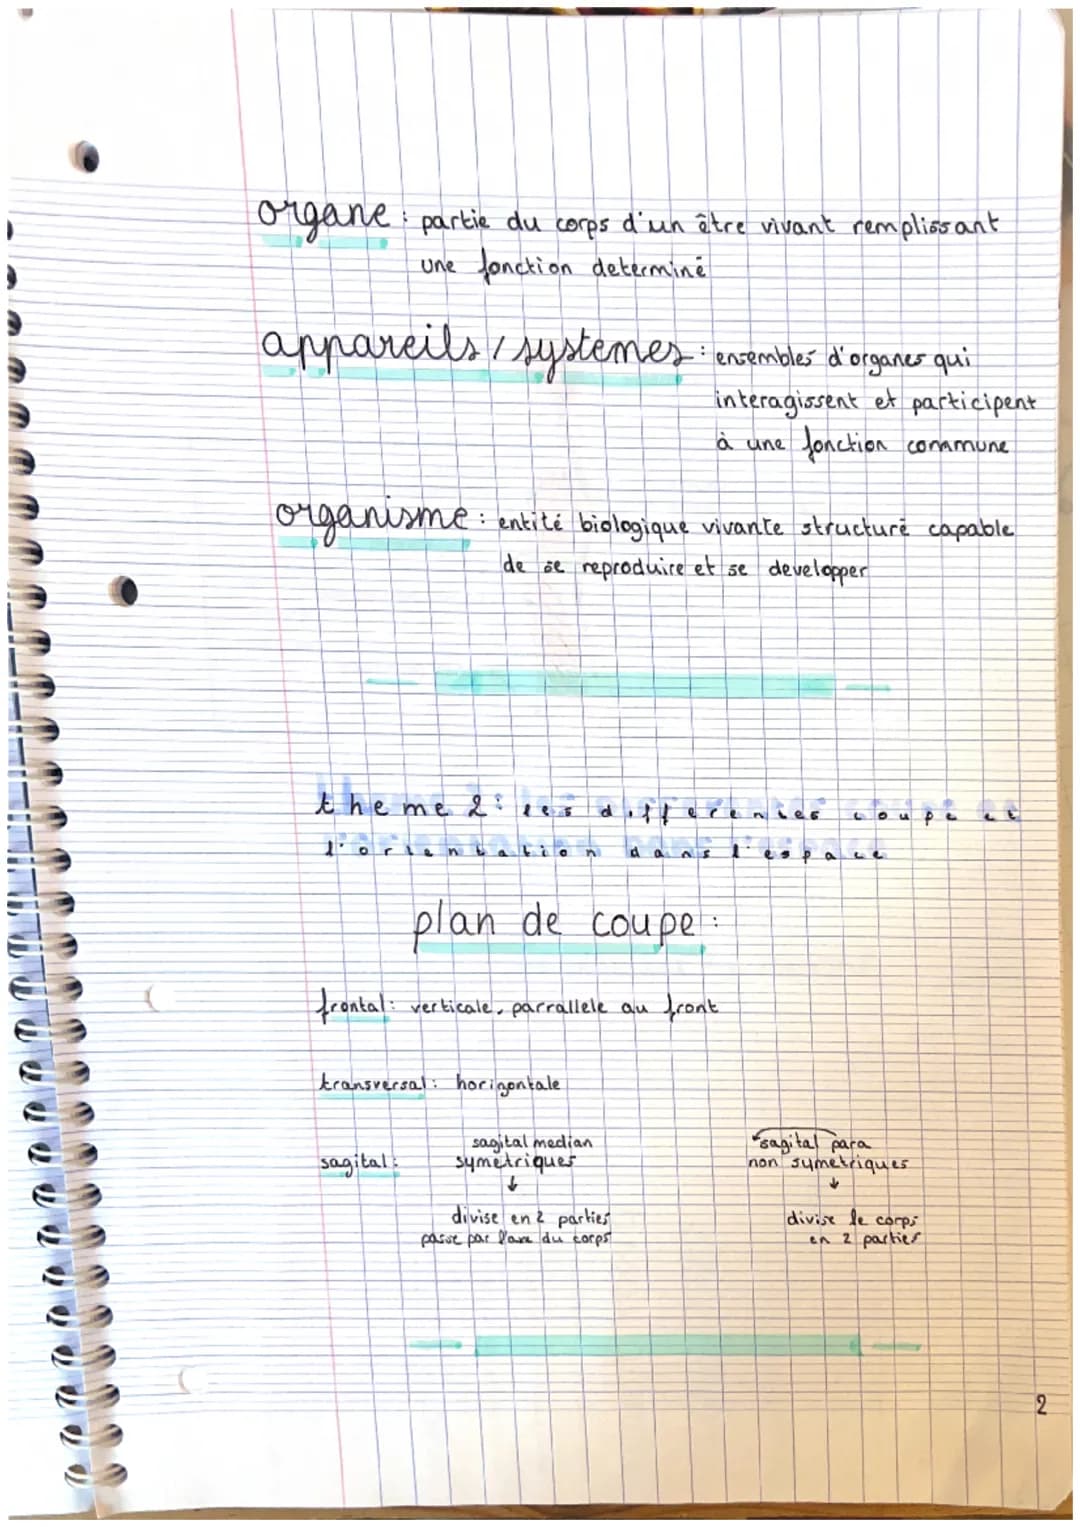 organe : partie du corps d'un être vivant remplissant
une fonction determiné
appareils / systemes : ensembles d'organes qui
interagissent et participent
à une fonction commune
organisme : entité biologique vivante structuré capable
de se reproduire et se developper
theme 2 : les differentes coupe et
l'orientation dans l'espace
plan de coupe :
frontal : verticale, parrallele au front
transversal : horizontale
sagital :
sagital median
symetriques
↓
divise en 2 parties
passe par l'axe du corps
sagital para
non symetriques
↓
divise le corps
en 2 parties
2